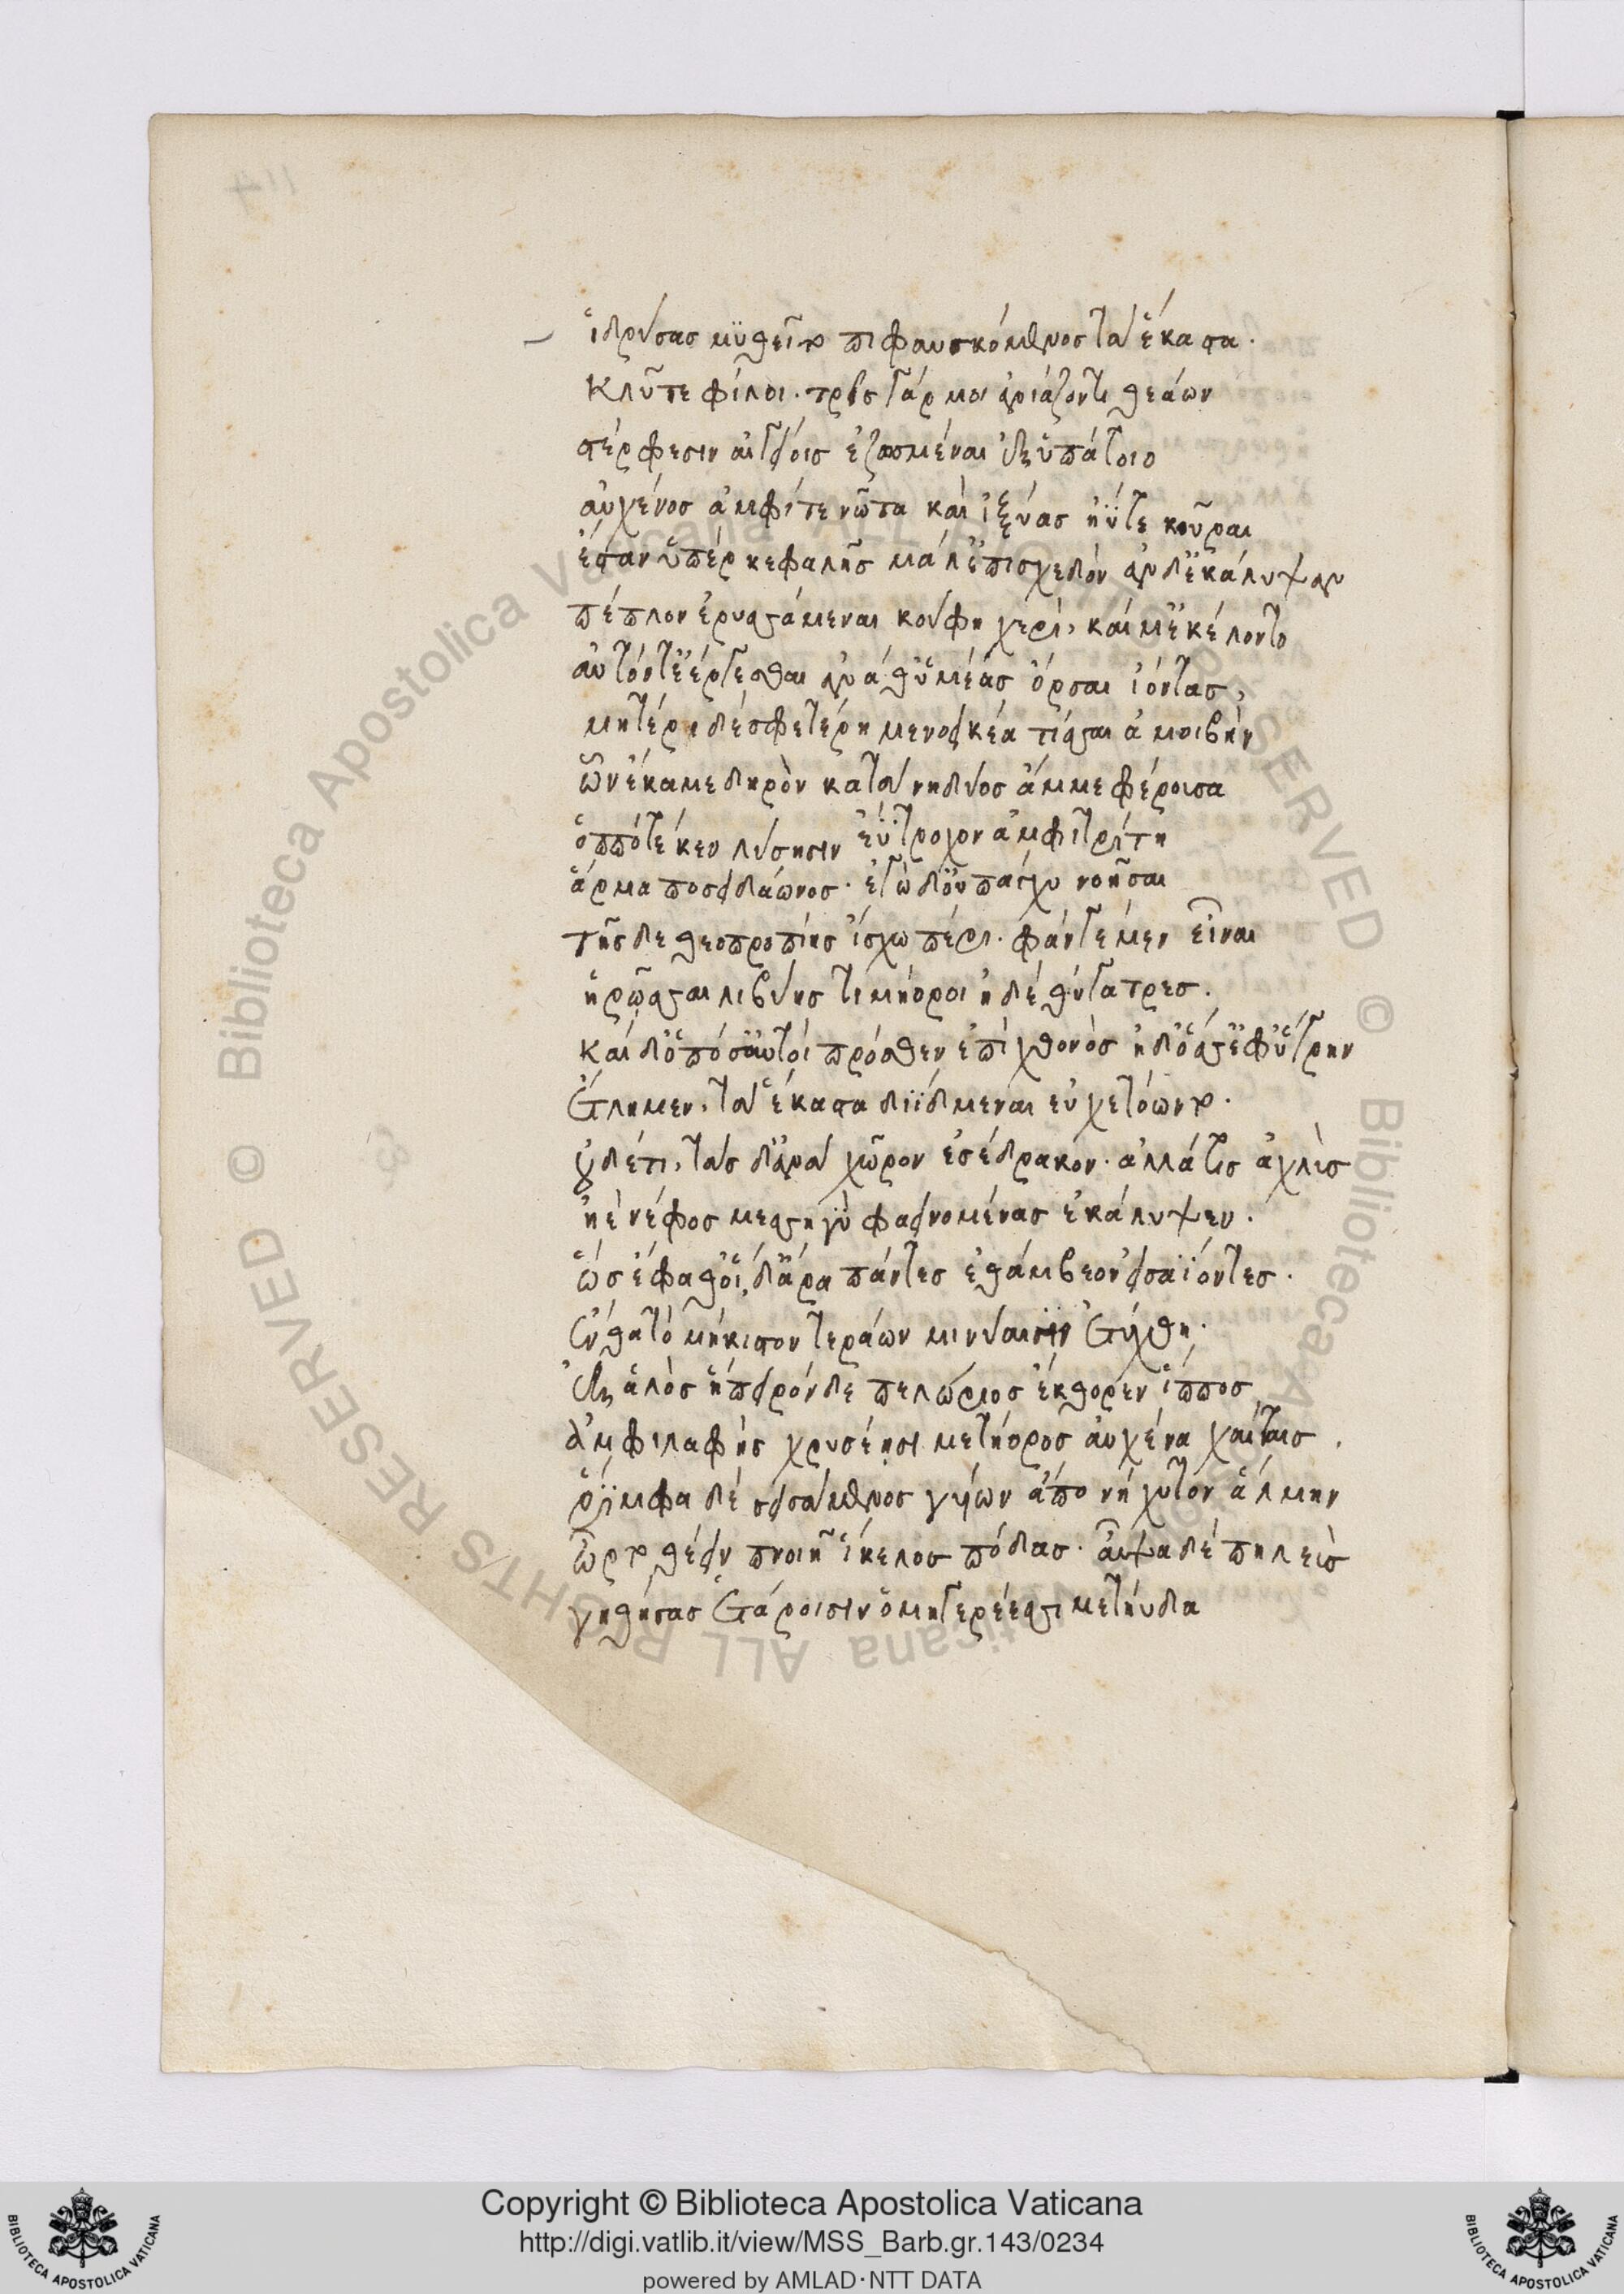 ἱδρύσας μυθεῖτο πιφαυσκόμενος τὰ ἕκαστα.
Κλῦτε φίλοι. τρεῖς γάρ μοι ἀνιάζοντι θεάων
στέρφεσιν αἰγείοις ἐζωσμέναι ἐξ ὑπάτοιο
αὐχένος ἀμφί τε νῶτα καὶ ἰξύας ἠΰτε κοῦραι
ἔσταν ὑπὲρ κεφαλῆς μάλ' ἐπισχεδὸν ἂν δ' ἐκάλυψαν
πέπλον ἐρυσσάμεναι κούφη χερὶ, καί μ' ἐκέλοντο
αὐτόν τ' ἔγρεσθαι ἀνά θ' ὑμέας ὄρσαι ἰόντας,
μητέρι δὲ σφετέρη μενοεικέα τίσσαι ἀμοιβὴν
ὧν ἔκαμε δηρὸν κατὰ νηδύος ἄμμε φέρουσα
ὁππότε κεν λύσησιν ἐΰτροχον ἀμφιτρίτη
ἅρμα ποσειδάωνος. ἐγὼ δ' οὐ πάγχυ νοῆσαι
τῆσδε θεοπροπίης ἴσχω πέρι. φάν γε μὲν εἶναι
ἡρῶσσαι λιβύης τιμήοροι ἠδὲ θύγατρες.
καὶ δ' ὁπόσ' αὐτοὶ πρόσθεν ἐπὶ χθονὸς ἠδ' ὅσσ' ἐφ' ὑγρὴν
ἔτλημεν, τὰ ἕκαστα διΐδμεναι εὐχετόωντο.
οὐδ' ἔτι, τὰς δ' ἀνὰ χῶρον ἐσέδρακον. ἀλλά τις ἀχλὺς
ἠὲ νέφος μεσσηγὺ φαεινομένας ἐκάλυψεν.
ὣς ἔφαθ' οἱ δ' ἄρα πάντες ἐθάμβεον εἰσαΐοντες.
ἔνθα τὸ μήκιστον τεράων μινύαισιν ἐτύχθη.
ἐξ ἁλὸς ἤπειρόνδε πελώριος ἔκθορεν ἵππος
ἀμφιλαφὴς χρυσέῃσι μετήορος αὐχένα χαίταις.
ῥίμφα δὲ σεισάμενος γυίων ἄπο νήχυτον ἅλμην
ὦρτο θέειν πνοιῇ ἴκελος πόδας. αἶψα δὲ πηλεὺς
γηθήσας ἑτάροισιν ὁμηγερέεσσι μετηύδα
Copyright © Biblioteca Apostolica Vaticana
http://digi.vatlib.it/view/MSS_Barb.gr.143/0234
powered by AMLAD·NTT DATA